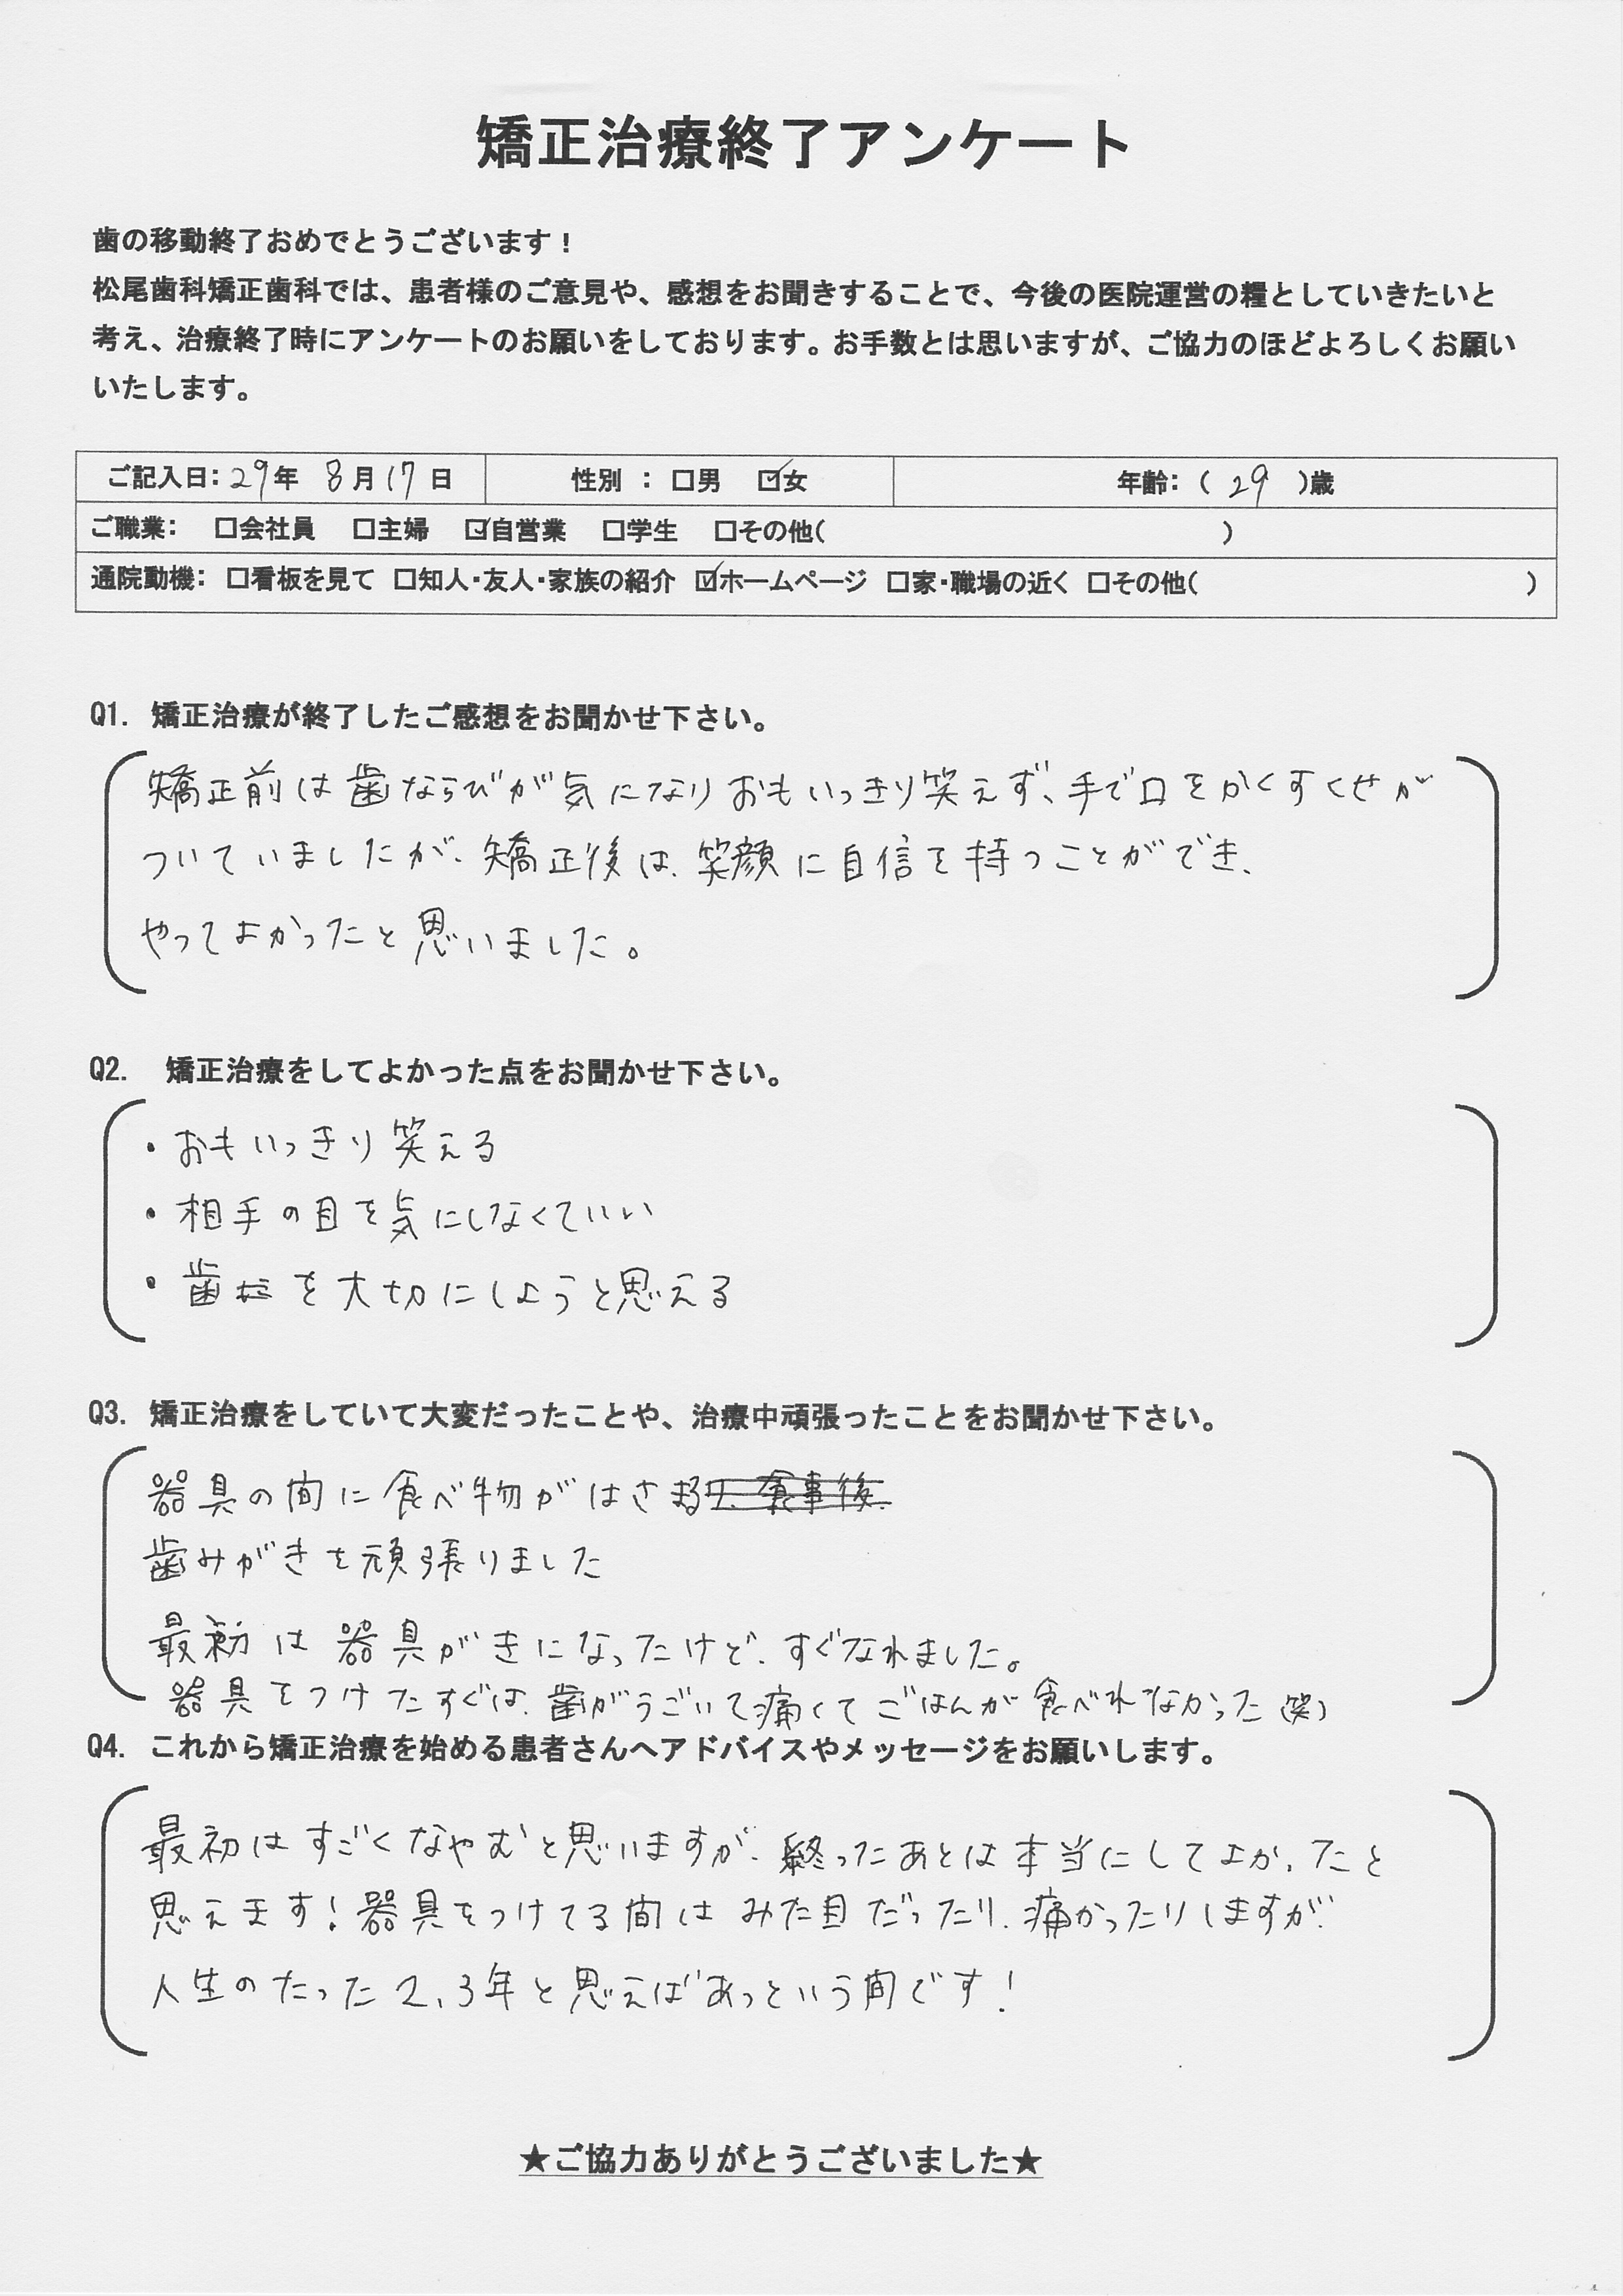 矯正治療終了アンケート
歯の移動終了おめでとうございます！
松尾歯科矯正歯科では、患者様のご意見や、感想をお聞きすることで、今後の医院運営の糧としていきたいと
考え、治療終了時にアンケートのお願いをしております。お手数とは思いますが、ご協力のほどよろしくお願い
いたします。
ご記入日：29年 8月17日 性別 ： □男 ☑女 年齢：( 29 )歳
ご職業： □会社員 □主婦 ☑自営業 □学生 □その他( )
通院動機： □看板を見て □知人・友人・家族の紹介 ☑ホームページ □家・職場の近く □その他( )
Q1. 矯正治療が終了したご感想をお聞かせ下さい。
矯正前は歯ならびが気になりおもいっきり笑えず、手で口をかくすくせが
ついていましたが、矯正後は、笑顔に自信を持つことができ、
やってよかったと思いました。
Q2. 矯正治療をしてよかった点をお聞かせ下さい。
・おもいっきり笑える
・相手の目を気にしなくていい
・歯を大切にしようと思える
Q3. 矯正治療をしていて大変だったことや、治療中頑張ったことをお聞かせ下さい。
器具の間に食べ物がはさまる 食事後
歯みがきを頑張りました
最初は器具がきになったけど、すぐなれました。
器具をつけたすぐは、歯がうごいて痛くてごはんが食べれなかった(笑)
Q4. これから矯正治療を始める患者さんへアドバイスやメッセージをお願いします。
最初はすごくなやむと思いますが、終ったあとは本当にしてよかったと
思えます！器具をつけてる間はみた目だったり、痛かったりしますが、
人生のたった2、3年と思えばあっという間です！
★ご協力ありがとうございました★